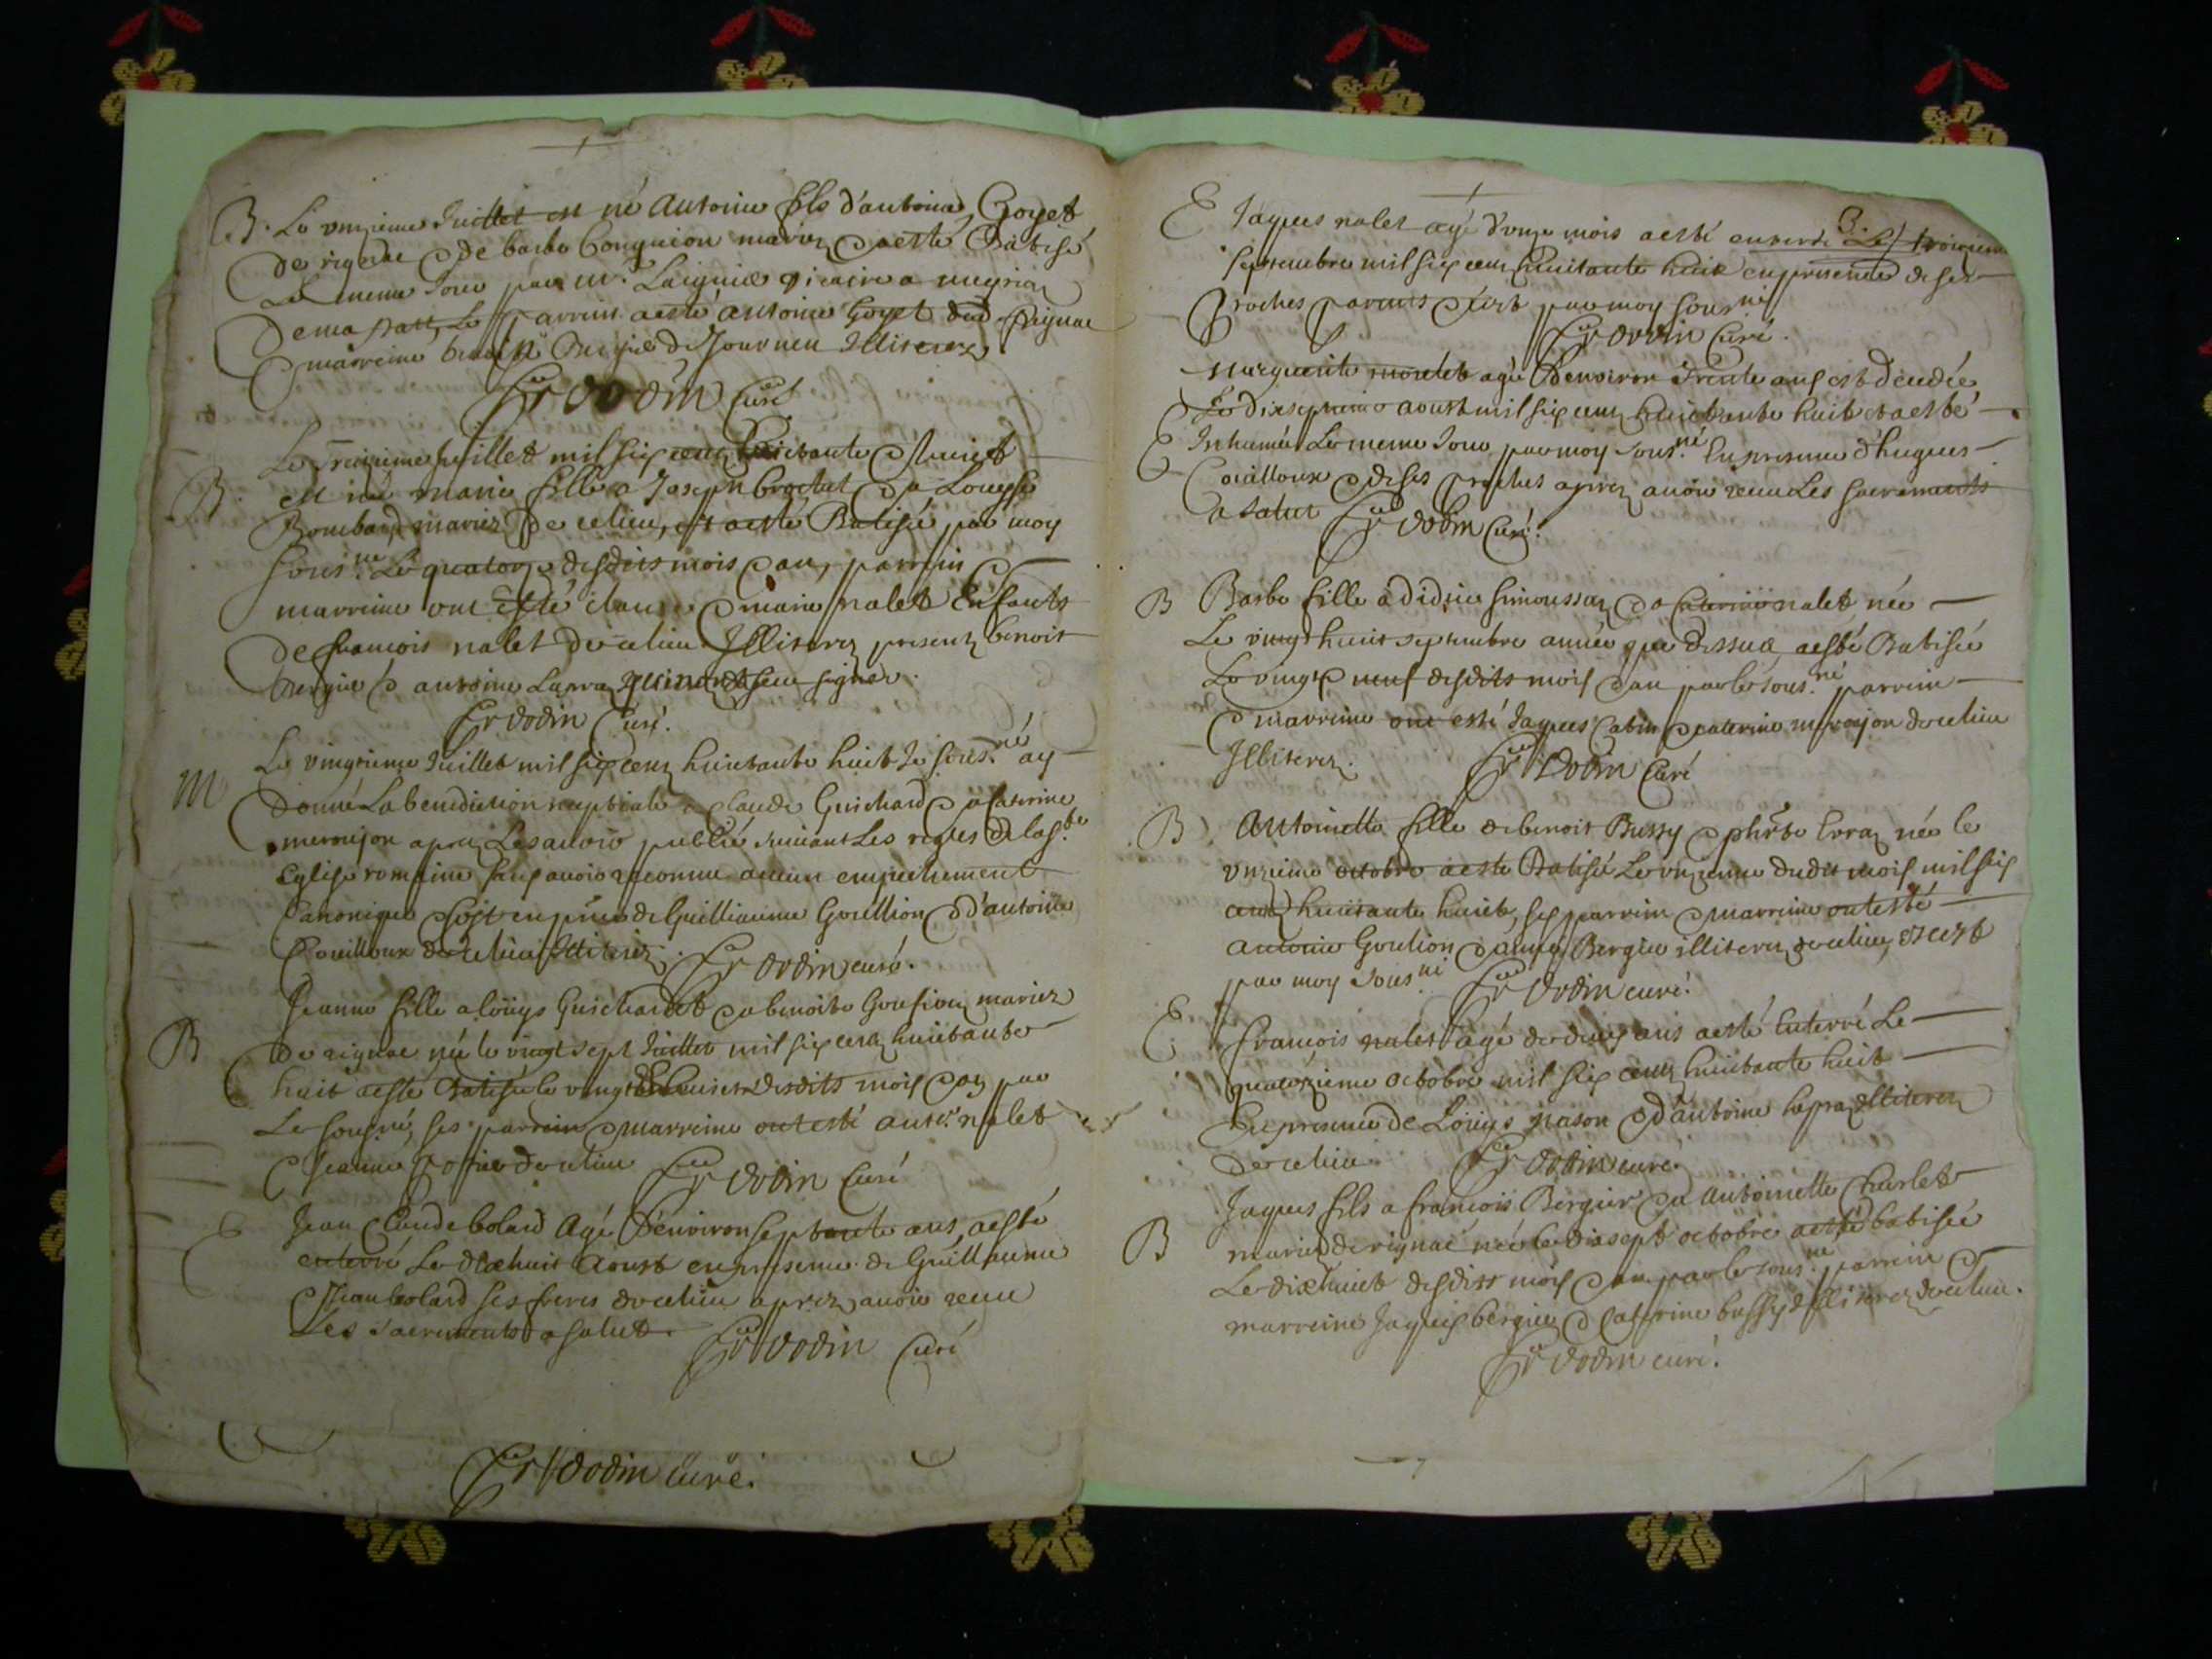 B. Le unzieme Juillet est né Antoine fils d'antoine Goyet
de rignac & de barbe Conguion mariez & a esté Batisé
Le meme Jour par mr. vicaire a
De ma part, Le parrein a esté antoine Goyet dud Rignac
& marreine de Journen Illiterez
Fr Dodin Curé
Le Treizieme Juillet mil six cens huictante & huict
B. est né marie fille a Joseph brochet & a Louyse
Bombard mariez de ce lieu, et a esté Batisée par moy
sous.né Le quatorze desdits mois & an, parrein &
marreine ont esté claude & marie nalet Enfants
De francois nalet de ce lieu Illiterez presents benoit
bergier & antoine Lapraz qui n'ont sceu signer.
Fr Dodin Curé.
Le vingtieme Juillet mil six cens huictante huit Je sous.né ay
M donné La benediction nuptiale a claude Guichard & a Caterine
meronjon aprez Les avoir publié suivant Les regles de la s.te
Eglise romaine sans avoir reconnu aucun empechement
Canonique & c'est en pnce de Guilliaume Goullion & d'antoine
Couilloux de ce lieu Illiterez. Fr Dodin curé.
Jeanne fille a Loüys Guichardet & a benoite Goufion mariez
B De rignac née le vingt sept Juillet mil six cens huictante
huit a esté Batisée le vingt & huict desdits mois & an par
Le sousné, ses parrein & marreine ont esté ant.e nalet
& Jeanne poffier de ce lieu Fr Dodin Curé
E Jean Claude bolard Agé D'environ septante ans, a esté
enterré Le dixhuit Aoust en presence de Guilliaume
& Jean bolard ses freres de ce lieu aprez avoir receu
Les sacrements a salut. Fr Dodin Curé
Fr Dodin curé.
3.
E Jaques nalet agé d'onze mois a esté enterré Le troizieme
septembre mil six cens huictante huit en presence de ses
Proches parents & c'est par moy sous.né
Fr Dodin Curé.
marguerite agée D'environ Trente ans est decedée
Le dixseptieme aoust mil six cens huictante huit et a esté
E Inhumée Le meme Jour par moy sous.né En presence d'hugues
Couilloux & de ses proches aprez avoir receu Les sacrements
a salut Fr Dodin Curé.
B Barbe fille a didier Simoussaz & a Caterine nalet née
Le vingt huit septembre année que dessus, a esté Batisée
Le vingt neuf desdits mois & an par le sous.né parrein
& marreine ont esté Jaques Cabin & caterine meronjon de ce lieu
Illiterez. Fr Dodin Curé
B Antoinette fille de benoit Bussy & phrte née le
unzieme octobre a esté Batisée Le unzieme dudit mois mil six
cens huictante huict, ses parrein & marreine ont esté
antoine Goulion & anne Bergier illiterez de ce lieu, & c'est
par moy sous.né Fr Dodin curé.
E francois nalet agé de deux ans a esté Enterré Le
quatorzieme octobre mil six cens huictante huit
En presence de Loüys nason & d'antoine lapraz Illiterez
De ce lieu Fr Dodin curé
Jaques fils a francois Bergier & a Antoinette Charlet
B mariez de rignac né le dixsept octobre a esté batisé
Le dixhuict desdits mois & an par le sous.né parrein &
marreine Jaques bergier & Caterine bussy Illiterez de ce lieu.
Fr Dodin curé.